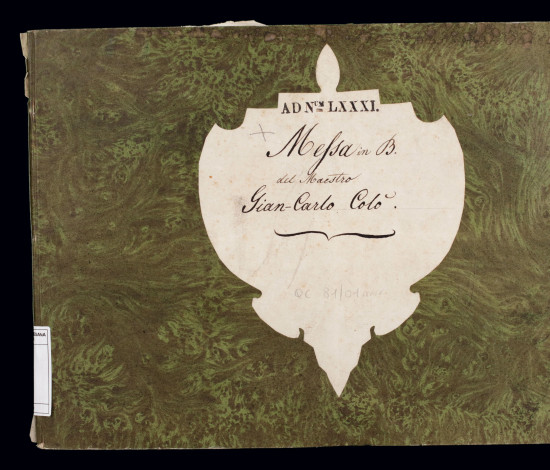 AD N.TM LXXXI.
Meſsa in B.
del Maestro
Gian-Carlo Colò.